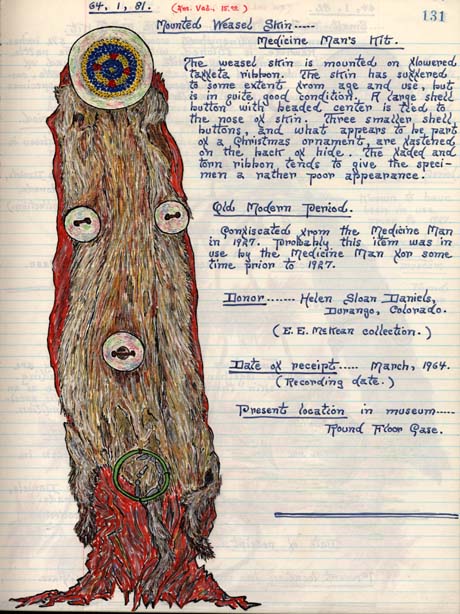 64. 1, 81.
131
Mounted Weasel Skin.....
Medicine Man's Kit.
The weasel skin is mounted on flowered
taffeta ribbon. The skin has suffered
to some extent from age and use, but
is in quite good condition. A large shell
button with beaded center is tied to
the nose of skin. Three smaller shell
buttons, and what appears to be part
of a Christmas ornament, are fastened
on the back of hide. The faded and
torn ribbon tends to give the speci-
men a rather poor appearance.
Old Modern Period.
Confiscated from the Medicine Man
in 1927. Probably this item was in
use by the Medicine Man for some
time prior to 1927.
Donor....... Helen Sloan Daniels,
Durango, Colorado.
(E. E. McKean collection.)
Date of receipt..... March, 1964.
(Recording date.)
Present location in museum.....
Round Floor Case.